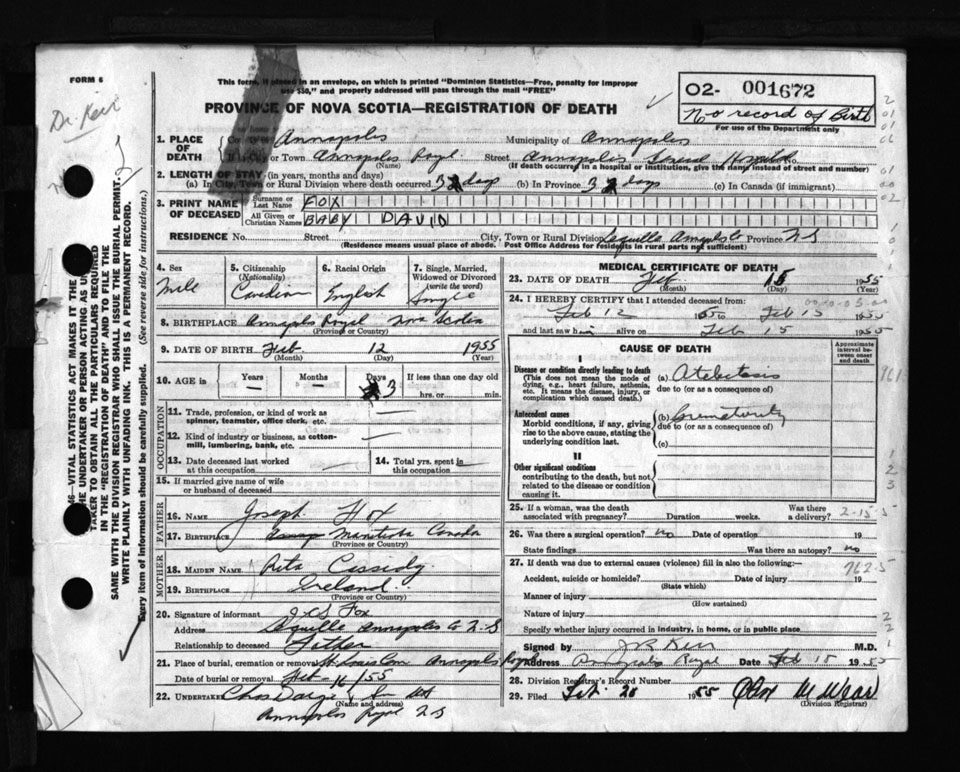 FORM 6
Dr. Kerr
This form, if placed in an envelope, on which is printed "Dominion Statistics—Free, penalty for improper
use $50," and properly addressed will pass through the mail "FREE"
PROVINCE OF NOVA SCOTIA—REGISTRATION OF DEATH
02- 001672
No record of Birth
For use of the Department only
1. PLACE OF DEATH
County of Annapolis Municipality of Annapolis
If in City or Town Annapolis Royal Street Annapolis General Hospital No.
(Name) (If death occurred in a hospital or institution, give the name instead of street and number)
2. LENGTH OF STAY (in years, months and days)
(a) In City, Town or Rural Division where death occurred 3 days (b) In Province 3 days (c) In Canada (if immigrant)
3. PRINT NAME OF DECEASED
Surname or Last Name FOX
All Given or Christian Names BABY DAVID
RESIDENCE No. Street City, Town or Rural Division Lequille Annapolis Co Province N S
(Residence means usual place of abode. Post Office Address for residents in rural parts not sufficient)
4. Sex Male
5. Citizenship (Nationality) Canadian
6. Racial Origin English
7. Single, Married, Widowed or Divorced (write the word) Single
8. BIRTHPLACE Annapolis Royal Nova Scotia
(Province or Country)
9. DATE OF BIRTH Feb. 12 1955
(Month) (Day) (Year)
10. AGE in Years Months Days 3 If less than one day old
hrs. or min.
OCCUPATION
11. Trade, profession, or kind of work as
spinner, teamster, office clerk, etc.
12. Kind of industry or business, as cotton-
mill, lumbering, bank, etc.
13. Date deceased last worked
at this occupation
14. Total yrs. spent in
this occupation
15. If married give name of wife
or husband of deceased
FATHER
16. NAME Joseph Fox
17. BIRTHPLACE Manitoba Canada
(Province or Country)
MOTHER
18. MAIDEN NAME Rita Cassidy
19. BIRTHPLACE Ireland
(Province or Country)
20. Signature of informant J S Fox
Address Lequille Annapolis Co N-S
Relationship to deceased Father
21. Place of burial, cremation or removal St Louis Cem Annapolis Royal
Date of burial or removal Feb-16/55
22. UNDERTAKER
(Name and address)
Annapolis Royal N S
MEDICAL CERTIFICATE OF DEATH
23. DATE OF DEATH Feb 15 1955
(Month) (Day) (Year)
24. I HEREBY CERTIFY that I attended deceased from:
Feb 12 1955 to Feb 15 1955
and last saw him alive on Feb 15 1955
CAUSE OF DEATH
Approximate interval between onset and death
I
Disease or condition directly leading to death
(This does not mean the mode of
dying, e.g., heart failure, asthenia,
etc. It means the disease, injury, or
complication which caused death.)
(a) Atelectasis
due to (or as a consequence of)
Antecedent causes
Morbid conditions, if any, giving
rise to the above cause, stating the
underlying condition last.
(b) Prematurity
due to (or as a consequence of)
(c)
II
Other significant conditions
contributing to the death, but not
related to the disease or condition
causing it.
25. If a woman, was the death
associated with pregnancy? Duration weeks. Was there
a delivery?
26. Was there a surgical operation? no Date of operation 19
State findings Was there an autopsy? no
27. If death was due to external causes (violence) fill in also the following:—
762.5
Accident, suicide or homicide? Date of injury 19
(State which)
Manner of injury
(How sustained)
Nature of injury
Specify whether injury occurred in industry, in home, or in public place
Signed by J R Kerr M.D.
Address Annapolis Royal Date Feb 15 1955
28. Division Registrar's Record Number
29. Filed Feb. 20 1955
(Division Registrar)
46—VITAL STATISTICS ACT MAKES IT THE
THE UNDERTAKER OR PERSON ACTING AS
TAKER TO OBTAIN ALL THE PARTICULARS REQUIRED
IN THE "REGISTRATION OF DEATH" AND TO FILE THE
SAME WITH THE DIVISION REGISTRAR WHO SHALL ISSUE THE BURIAL PERMIT.
WRITE PLAINLY WITH UNFADING INK. THIS IS A PERMANENT RECORD.
Every item of information should be carefully supplied. (See reverse side for instructions.)